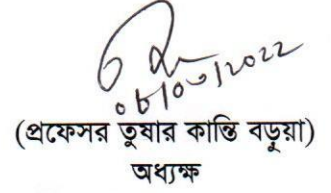 ০৮/০৩/২০২২
(প্রফেসর তুষার কান্তি বড়ুয়া)
অধ্যক্ষ